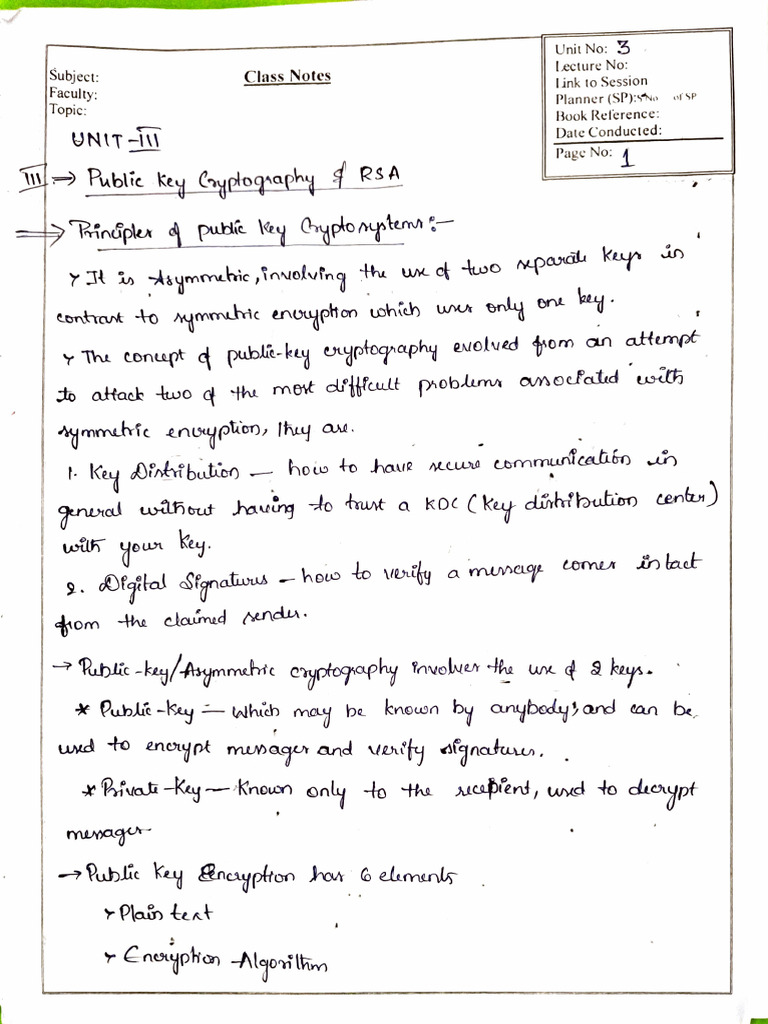 Subject:
Class Notes
Faculty:
Topic:
Unit No: 3
Lecture No:
Link to Session
Planner (SP):S.No of SP
Book Reference:
Date Conducted:
Page No: 1
UNIT-III
III ⇒ Public Key Cryptography & RSA
⇒ Principles of public key Cryptosystems:-
It is Asymmetric, involving the use of two separate keys in
contrast to symmetric encryption which uses only one key.
The concept of public-key cryptography evolved from an attempt
to attack two of the most difficult problems associated with
symmetric encryption, They are.
1. Key Distribution – how to have secure communication in
general without having to trust a KDC (Key distribution center)
with your key.
2. Digital Signatures – how to verify a message comes intact
from the claimed sender.
→ Public-key/Asymmetric cryptography involves the use of 2 keys.
* Public-Key – which may be known by anybody, and can be
used to encrypt messages and verify signatures.
* Private-Key – Known only to the recepient, used to decrypt
messages
→ Public Key Encryption has 6 elements
Plain text
Encryption Algorithm